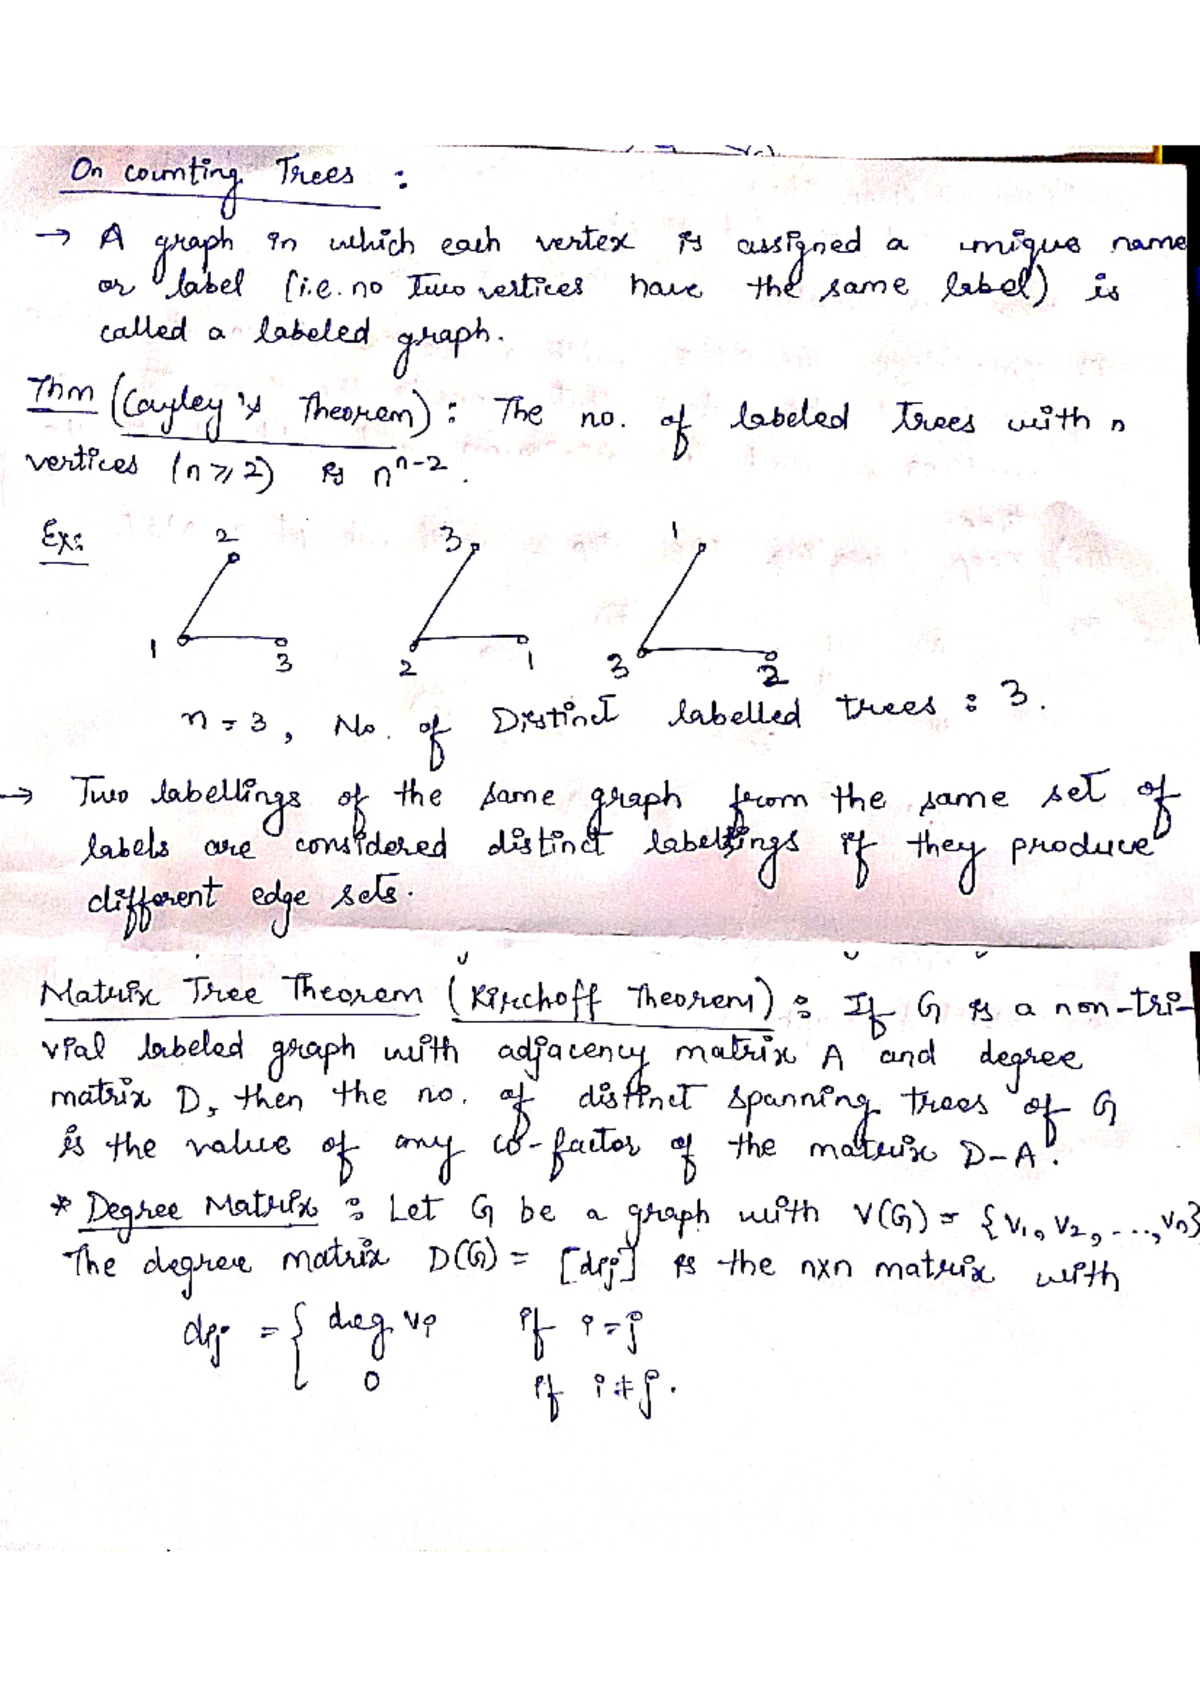 On counting Trees :
→ A graph in which each vertex is assigned a unique name
or label (i.e. no two vertices have the same label) is
called a labeled graph.
Thm (Cayley's Theorem) : The no. of labeled trees with n
vertices (n ≥ 2) is n^{n-2}.
Ex:
2 3 1
1 3 2 1 3 2
n = 3, No. of Distinct labelled trees : 3.
→ Two labellings of the same graph from the same set of
labels are considered distinct labellings if they produce
different edge sets.
Matrix Tree Theorem (Kirchoff Theorem) : If G is a non-tri-
vial labeled graph with adjacency matrix A and degree
matrix D, then the no. of distinct spanning trees of G
is the value of any co-factor of the matrix D-A.
* Degree Matrix : Let G be a graph with V(G) = {v1, v2, ..., vn}
The degree matrix D(G) = [dij] is the nxn matrix with
dij = { deg vi if i = j
0 if i ≠ j.